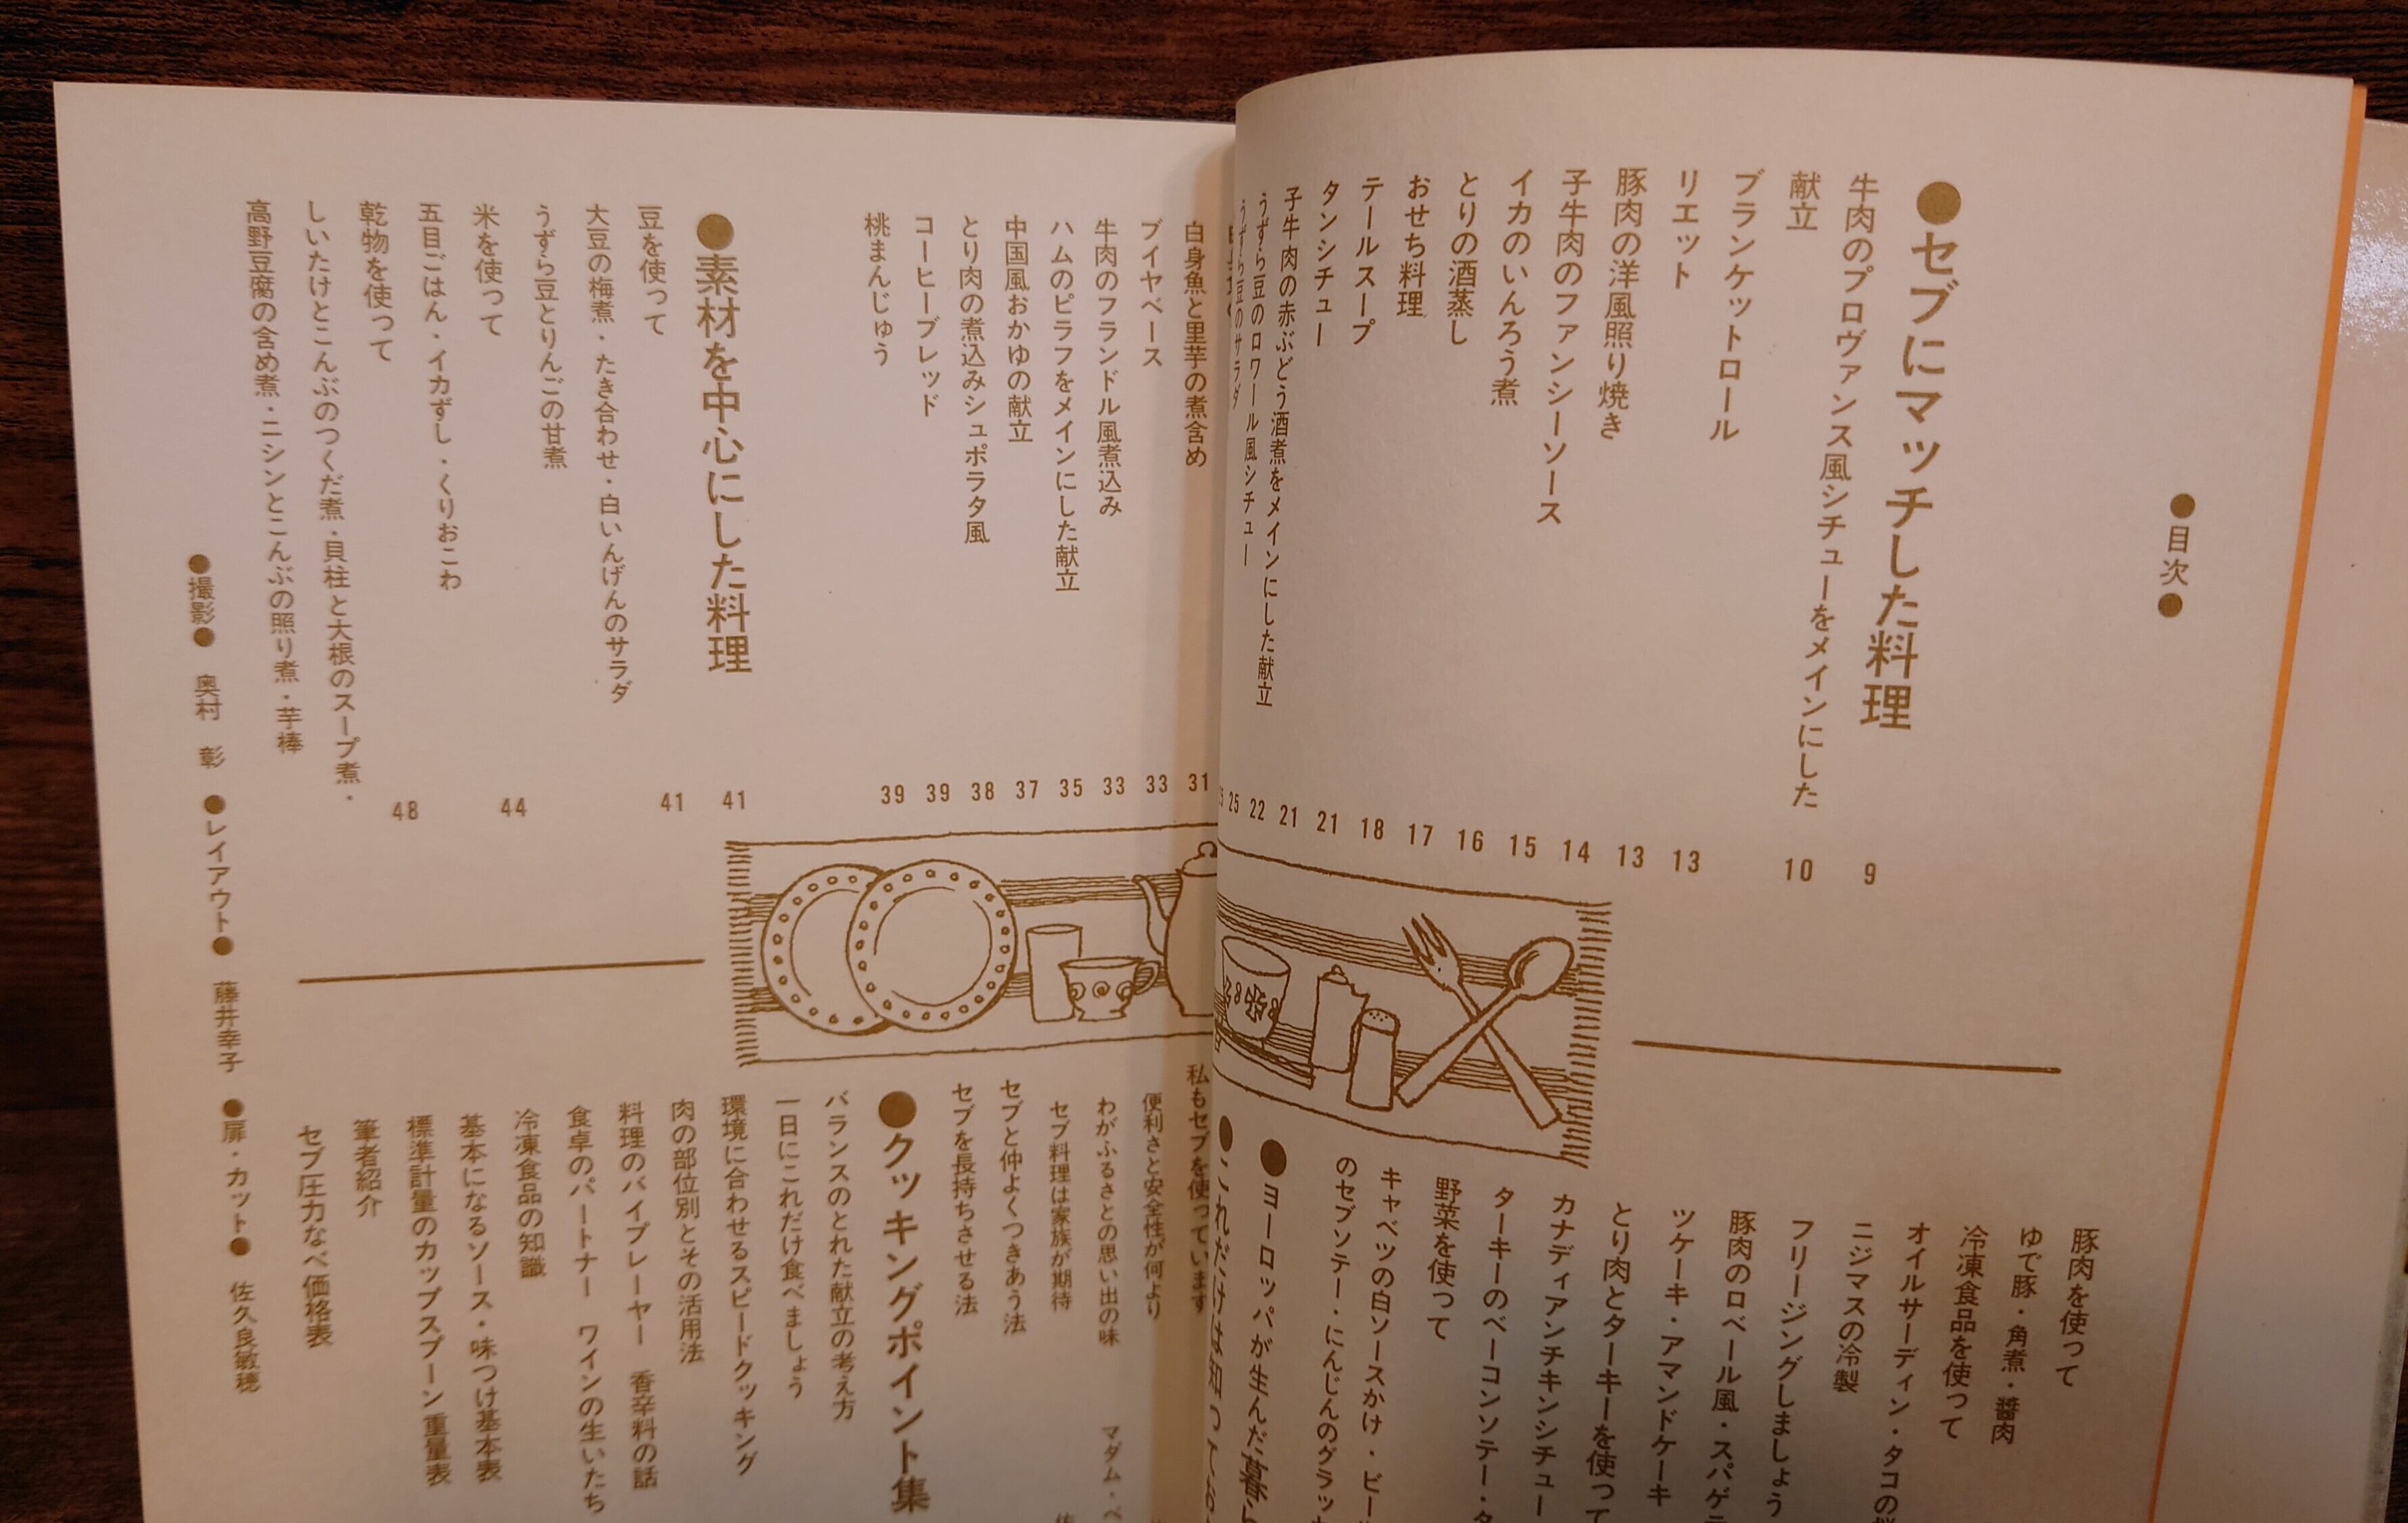 ●目次●
●セブにマッチした料理 9
牛肉のプロヴァンス風シチューをメインにした
献立 10
ブランケットロール
リエット 13
豚肉の洋風照り焼き 13
子牛肉のファンシーソース 14
イカのいんろう煮 15
とりの酒蒸し 16
おせち料理 17
テールスープ 18
タンシチュー 21
子牛肉の赤ぶどう酒煮をメインにした献立 21
うずら豆のロワール風シチュー 22
うずら豆のサラダ 25
白身魚と里芋の煮含め 31
ブイヤベース 33
牛肉のフランドル風煮込み 33
ハムのピラフをメインにした献立 35
中国風おかゆの献立 37
とり肉の煮込みシュポラタ風 38
コーヒーブレッド 39
桃まんじゅう 39
●素材を中心にした料理 41
豆を使って 41
大豆の梅煮・たき合わせ・白いんげんのサラダ
うずら豆とりんごの甘煮
米を使って 44
五目ごはん・イカずし・くりおこわ
乾物を使って 48
しいたけとこんぶのつくだ煮・貝柱と大根のスープ煮・
高野豆腐の含め煮・ニシンとこんぶの照り煮・芋棒
豚肉を使って
ゆで豚・角煮・醬肉
冷凍食品を使って
オイルサーディン・タコの
ニジマスの冷製
フリージングしましょう
豚肉のロベール風・スパゲ
ツケーキ・アマンドケーキ
とり肉とターキーを使って
カナディアンチキンシチュー
ターキーのベーコンソテー・
野菜を使って
キャベツの白ソースかけ・ビー
のセブソテー・にんじんのグラッ
●ヨーロッパが生んだ暮ら
●これだけは知って
私もセブを使っています
便利さと安全性が何より
わがふるさとの思い出の味 マダム・
セブ料理は家族が期待
セブと仲よくつきあう法
セブを長持ちさせる法
●クッキングポイント集
バランスのとれた献立の考え方
一日にこれだけ食べましょう
環境に合わせるスピードクッキング
肉の部位別とその活用法
料理のバイプレーヤー 香辛料の話
食卓のパートナー ワインの生いたち
冷凍食品の知識
基本になるソース・味つけ基本表
標準計量のカップスプーン重量表
筆者紹介
セブ圧力なべ価格表
●撮影● 奥村 彰 ●レイアウト● 藤井幸子 ●扉・カット● 佐久良敏穂